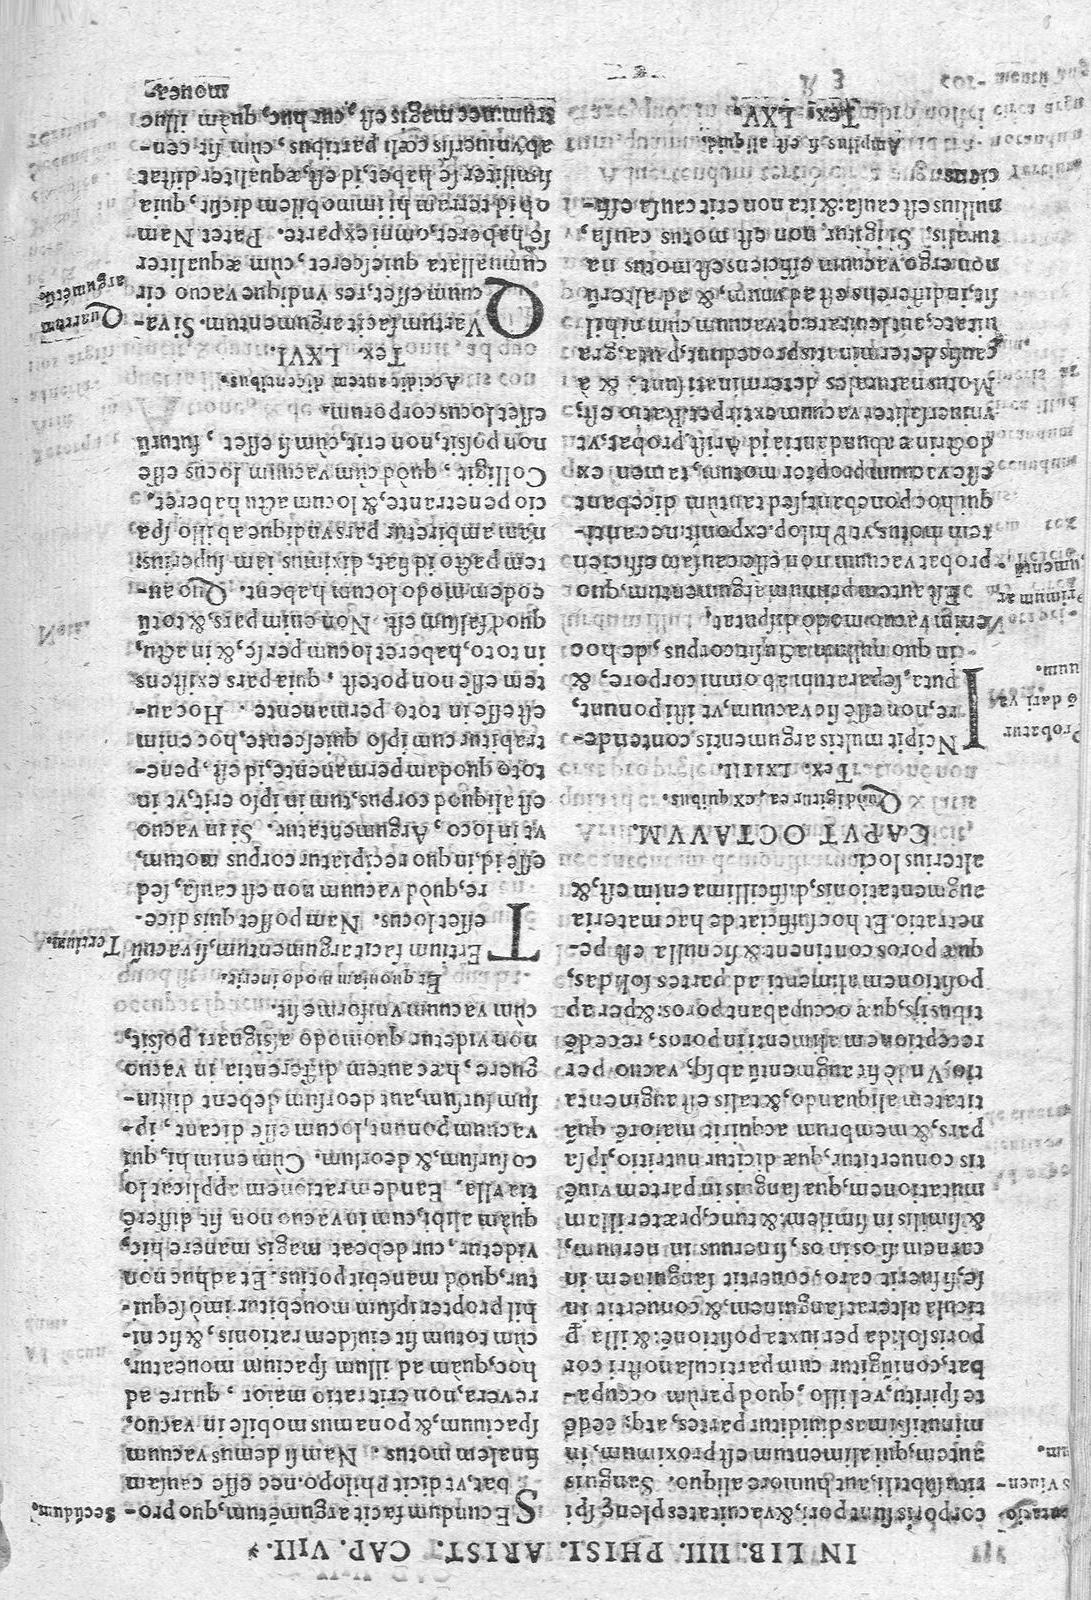 IN LIB. IIII. PHISI. ARIST. CAP. VIII.
corporis sunt pori, & vacuitates plenę spi
ritu subtili, aut humore aliquo. Sanguis
autem, qui alimentum est proximum, in
minutissimas diuiditur partes, atq; cedē
te spiritu, vel illo, quod parùm occupa-
bat, coniūgitur cum particula nostri cor
poris solida per iuxta positionē: & illa ꝑ
ticula alterat sanguinem, & conuertit in
se, si fuerit caro, cōuertit sanguinem in
carnem: si os in os, si neruus in neruum,
& similis in similem: & tunc, præter illam
mutationem, qua sanguis in partem viuē
tis conuertitur, quæ dicitur nutritio, ipsa
pars, & membrum acquirit maiorē quā
titatem aliquando, & talis est augmenta
tio. Vnde fit augmentū absq; vacuo per
receptionem alimenti in poros, recedē
tibus ijs, quæ occupabant poros: & per ap
positionem alimenti ad partes solidas,
quæ poros continent & sic nulla est pe-
net ratio. Et hoc sufficiat de hac materia
augmentationis, difficillima enim est, &
alterius loci.
CAPVT OCTAVVM.
Quòd igitur ea, ex quibus.
Tex. LXIIII.
INcipit multis argumentis contende-
re, non esse sic vacuum, vt isti ponunt,
puta, separatum ab omni corpore, &
in quo nullum actu sit corpus, de hoc
enim vacuo modò disputat,
Est autem primum argumentum, quo
probat vacuum non esse causam efficien
tem motus, vt Philop. exponit: nec anti-
qui hoc ponebant, sed tantùm dicebant
esse vacuum propter motum, tamen ex
doctrinæ abundantia id Arist. probat, vt
vniuersaliter vacuum extirpet. Ratio est,
Motus naturales determinati sunt, & à
causis determinatis procedunt, puta, gra
uitate, aut leuitate: at vacuum cum nihil
sit, indifferens est ad vnum, & ad alterū
non ergo vacuum efficiens est motus na
turalis. Si igitur non est motus causa,
nullius est causa: & ita non erit causa effi-
ciens.
Amplius si est aliquid.
Tex. LXV.
SEcundum facit argumētum, quo pro-
bat, vt dicit Philopo. nec esse causam
finalem motus. Nam si demus vacuum
spacium, & ponamus mobile in vacuo,
revera, non erit ratio maior, quare ad
hoc, quàm ad illum spacium moueatur,
cùm totum sit eiusdem rationis, & sic ni-
hil propter ipsum mouebitur: imò sequi-
tur, quòd manebit potius. Et adhuc non
videtur, cur debeat magis manere hic,
quàm alibi, cum in vacuo non sit differē
tia vlla. Eandem rationem applicat lo
co sursum, & deorsum. Cùm enim hi, qui
vacuum ponunt, locum esse dicant, ip-
sum sursum, aut deorsum debent distin-
guere, hæc autem differentia in vacuo
non videtur quomodo assignari possit,
cùm vacuum vniforme sit.
Et quoniam modo inerit.
TErtium facit argumentum, si vacuū
esset locus. Nam posset quis dice-
re, quòd vacuum non est causa, sed
esse id, in quo recipiatur corpus motum,
vt in loco, Argumentatur. Si in vacuo
est aliquod corpus, tum in ipso erit, vt in
toto quodam permanente, id est, pene-
trabitur cum ipso quiescente, hoc enim
est esse in toto permanente. Hoc au-
tem esse non potest, quia pars existens
in toto, haberet locum per se, & in actu,
quod falsum est. Non enim pars, & totū
eodem modo locum habent. Quo au-
tem pacto id fiat, diximus iam superius:
nam ambiretur pars vndique ab illo spa
cio penetrante, & locum actu haberet.
Colligit, quòd cùm vacuum locus esse
non possit, non erit, cùm si esset, futurū
esset locus corporum.
Accidit autem dicentibus.
Tex. LXVI.
QVartum facit argumentum. Si va-
cuum esset, res vndique vacuo cir
cumuallata quiesceret, cùm æqualiter
se haberet, omni ex parte. Patet Nam
ob id terram hi immobilem dicūt, quia
similiter se habet, id est, æqualiter distat
ab vniuersis cœli partibus, cùm sit cen-
trum: nec magis est, cur huc, quàm illuc
moue-
Probatur
nō dari va
cuum.
Primum ar
gumentū.
Secūdum.
Tertium.
Quartum
argumētū.